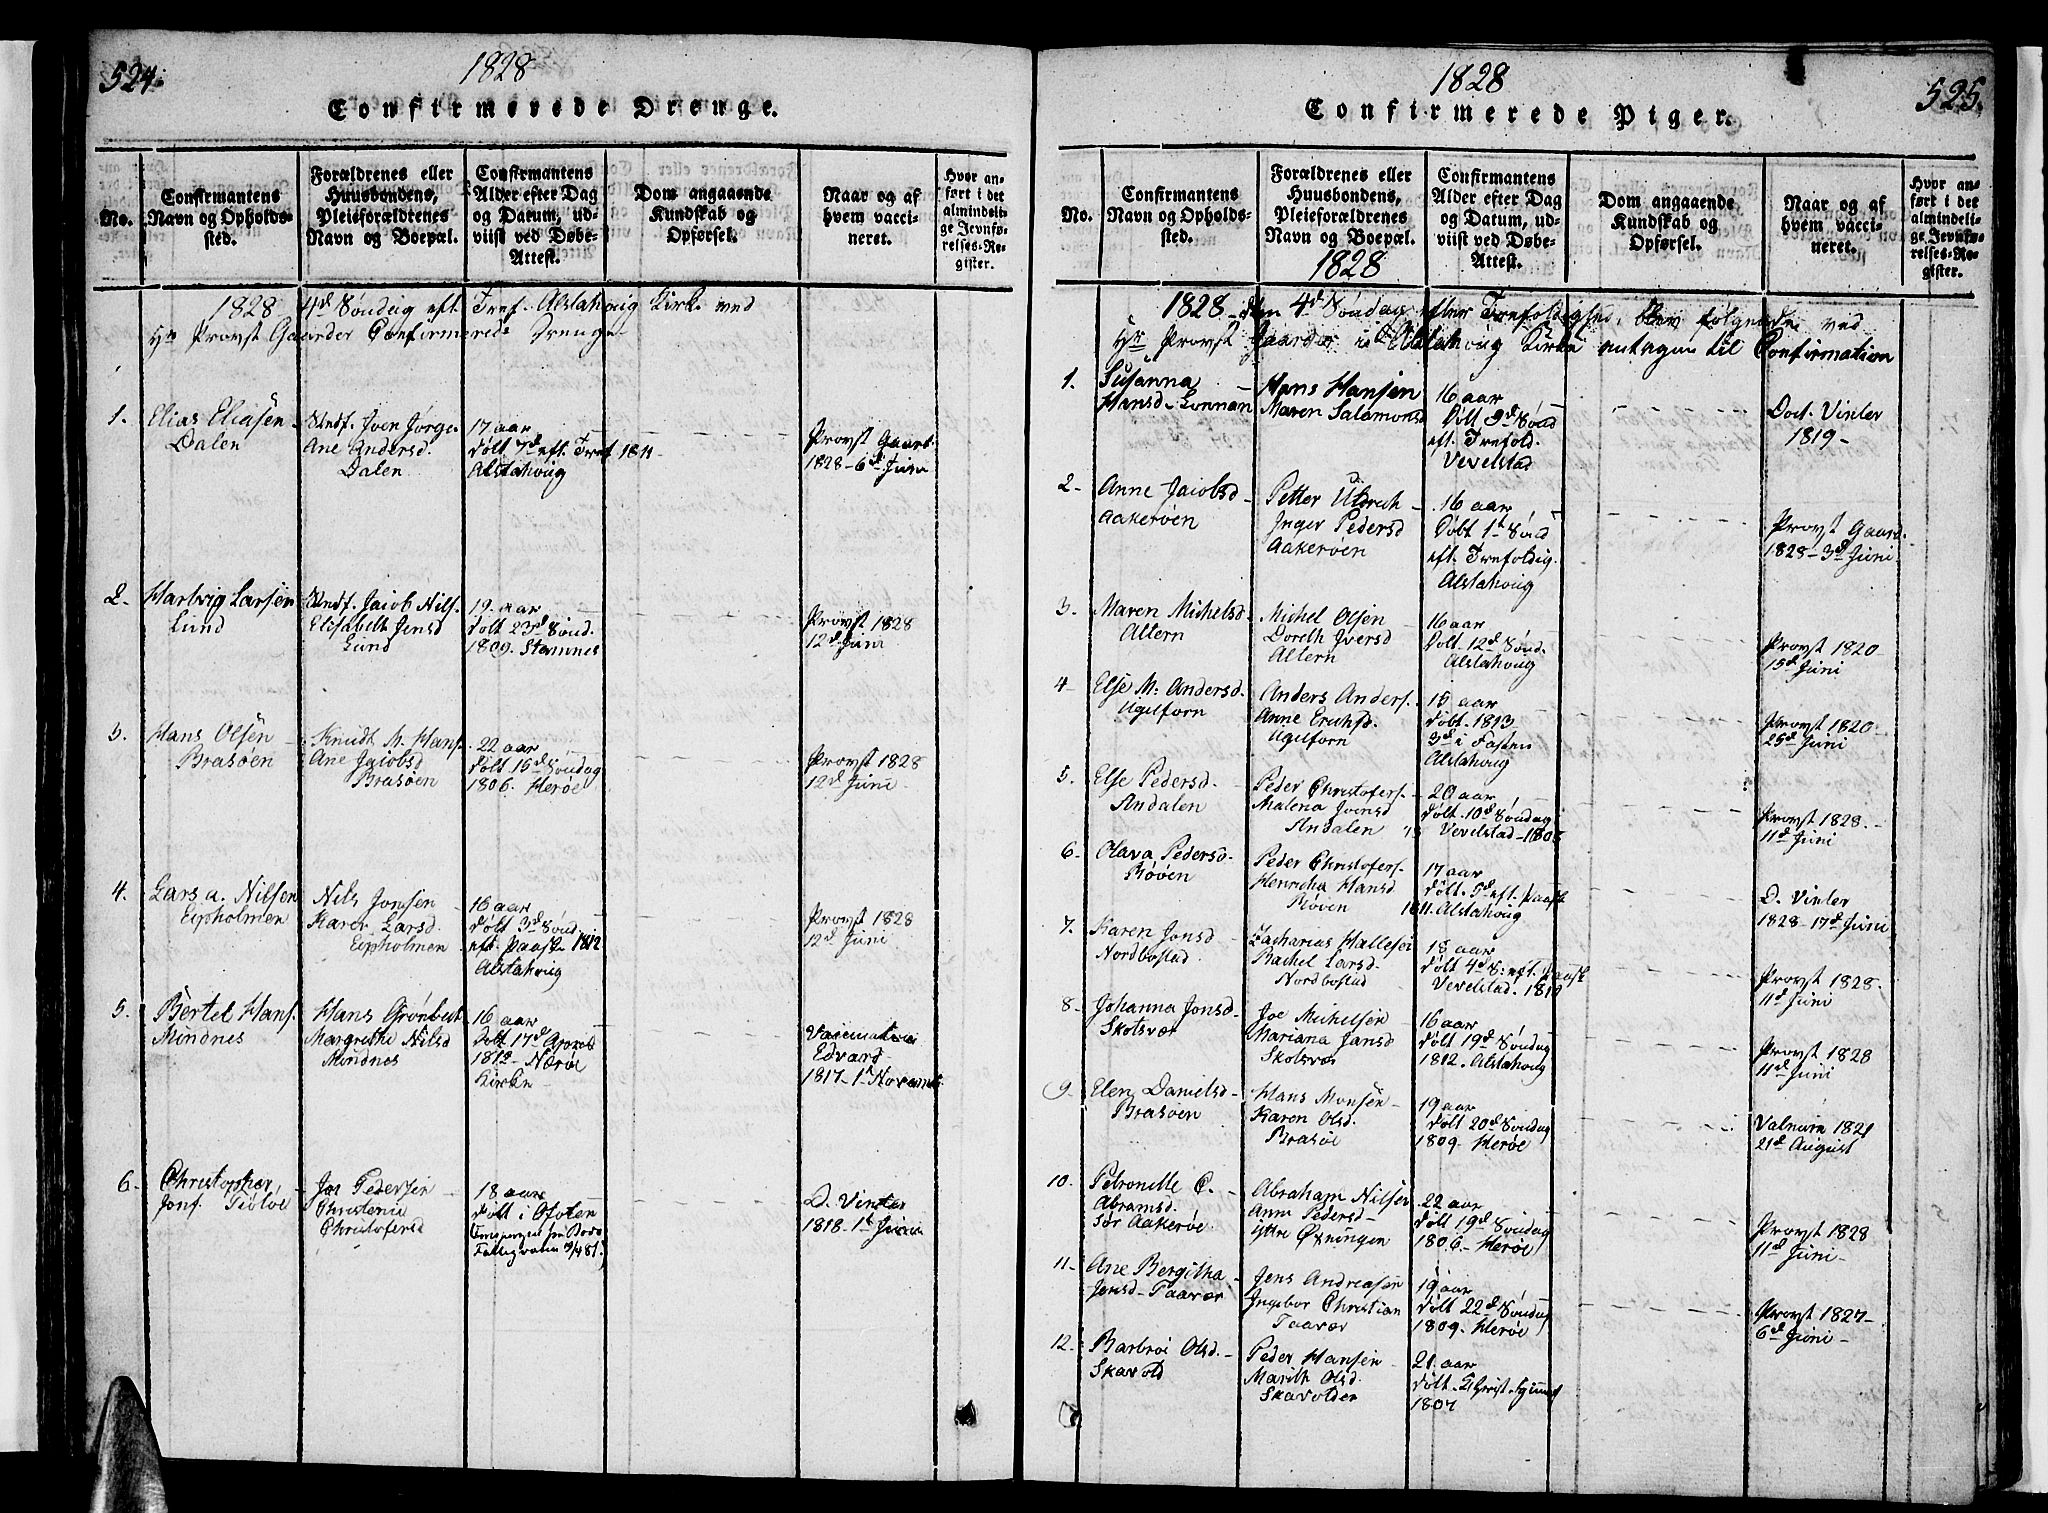 524.
1828
Confirmerede Drenge.
No.
Confirmantens
Navn og Opholds-
sted.
Forældrenes eller
Huusbondens,
Pleieforældrenes
Navn og Boepæl.
Confirmantens
Alder efter Dag
og Datum, ud-
viist ved Døbe-
Attest.
Dom angaaende
Kundskab og
Opførsel.
Naar og af
hvem vacci-
neret.
Hvor an-
ført i det
almindeli-
ge Jevnfø-
relses-Re-
gister.
1828 4d Søndag eft. Tref. Alstahoug Kirke ved
Hr Provst Gaarder Confirmerede Drenge
1. Elias Eliasen
Dalen
Iven Jørge.
Ane Andersd.
Dalen
17 aar
Døbt 7d eft. Tref. 1811
Alstahoug
Provst Gaard.
1828 - 6d Juni
2. Hartvig Larsen
Lund
Jacob Nils.
Elisabeth Jensd
Lund
19 aar
Døbt 23d Sønd.
1809. Stamnes
Provst 1828
12d Juni
3. Hans Olsen
Brasøen
Knudt M. Hans.
Ane Jacobsd
Brasøen
22 aar
Døbt 15d Søndag
1806. Herøe
Provst 1828
12d Juni
4. Lars A. Nilsen
Eipholmen
Nils Jonsen
Karen Larsd.
Eipholmen
16 aar
Døbt 3d Sønd
eft. Paaske 1812
Alstahoug
Provst 1828
12d Juni
5. Bertel Hans.
Mindnes
Hans Grønbech
Margrethe Nilsd
Mindnes
16 aar
Døbt 17d April
1812 - Nærøe
Kirke
Edvard
1817 - 1t Novemb.
6. Christopher
Jons. Tiøtøe
Joe Pedersen
Christenie
Christofersd
18 aar
Døbt i Ofoten
D. Vinter
1818. 1t Juni
1828
Confirmerede Piger.
525.
No.
Confirmantens
Navn og Opholds-
sted.
Forældrenes eller
Huusbondens,
Pleieforældrenes
Navn og Boepæl.
1828
Confirmantens
Alder efter Dag
og Datum, ud-
viist ved Døbe-
Attest.
Dom angaaende
Kundskab og
Opførsel.
Naar og af
hvem vacci-
neret.
Hvor an-
ført i det
almindeli-
ge Jevnfø-
relses-Re-
gister.
1828 - den 4d Søndag efter Trefoldighed, blev følgende ved
Hr Provst Gaarder i Alstahoug Kirke antagen til Confirmation
1. Susanna
Hansd
Hans Hansen
Maren Salamonsd
16 aar
Døbt 9d Sønd
eft. Trefold.
Vevelstad
Doct. Vinter
1819 -
2 - Anne Jacobsd -
Aakerøen
Petter Uldrich
Inger Pedersd
Aakerøen
16 aar
Døbt 1t Sønd
eft. Trefoldig.
Alstahoug
Provst Gaard.
1828 - 3d Juni
3. Maren Michelsd
Altern
Michel Olsen
Doreth Iversd
Altern
16 aar
Døbt 12d Sønd.
Alstahoug
Provst 1820
15d Juni
4 - Else M. Andersd.
Ugelforn
Anders Anders.
Anne Erichsd.
Ugelforn
15 aar
Døbt. 1813
3d i Fasten
Alstahoug
Provst 1820
25d Juni
5. Else Pedersd.
Andalen
Peder Christofers.
Malena Ivensd
Andalen
20 aar
Døbt. 10d Søndag
Vevelstad - 1808
Provst 1828.
11d Juni
6. Olava Pedersd.
Røven
Peder Christofers.
Henricha Hansd
Røven
17 aar
Døbt. 5d eft. Paask
1811. Alstahoug
D. Vinter
1828 17d Juni
7. Karen Jonsd
Nordbostad
Zacharias Hallesen
Rachel Larsd.
Nordbostad
18 aar
Døbt 4d S. eft. Paask
Vevelstad. 1810
Provst 1828.
11d Juni
8. Johanna Jonsd
Skotsvær
Joe Michelsen
Mariana Jansd
Skotsvær
16 aar
Døbt 19d Søndag
1812. Alstahoug
Provst 1828
11d Juni
9. Elen Danielsd
Brasøen
Hans Monsen
Karen Olsd.
Brasøe
19 aar
Døbt 20d Søndag
1809. Herøe
Valnum 1821
21d August
10. Petronelle C.
Abramsd.
Sør Aakerøe.
Abraham Nilsen
Ann Pedersd -
Yttre Øxningen
22 aar
Døbt 19d Søndag
1806 - Herøe
Provst 1828
11d Juni -
11 - Ane Bergitha
Jensd - Taavær
Jens Andreasen
Ingebor Christian
Taavær
19 aar
Døbt 22d Søndag
1809. Herøe
Provst 1827 -
6d Juni -
12. Barbroe Olsd.
Skavold
Peder Hansen
Marith Olsd.
Skavolder
21 aar
Døbt.
1807